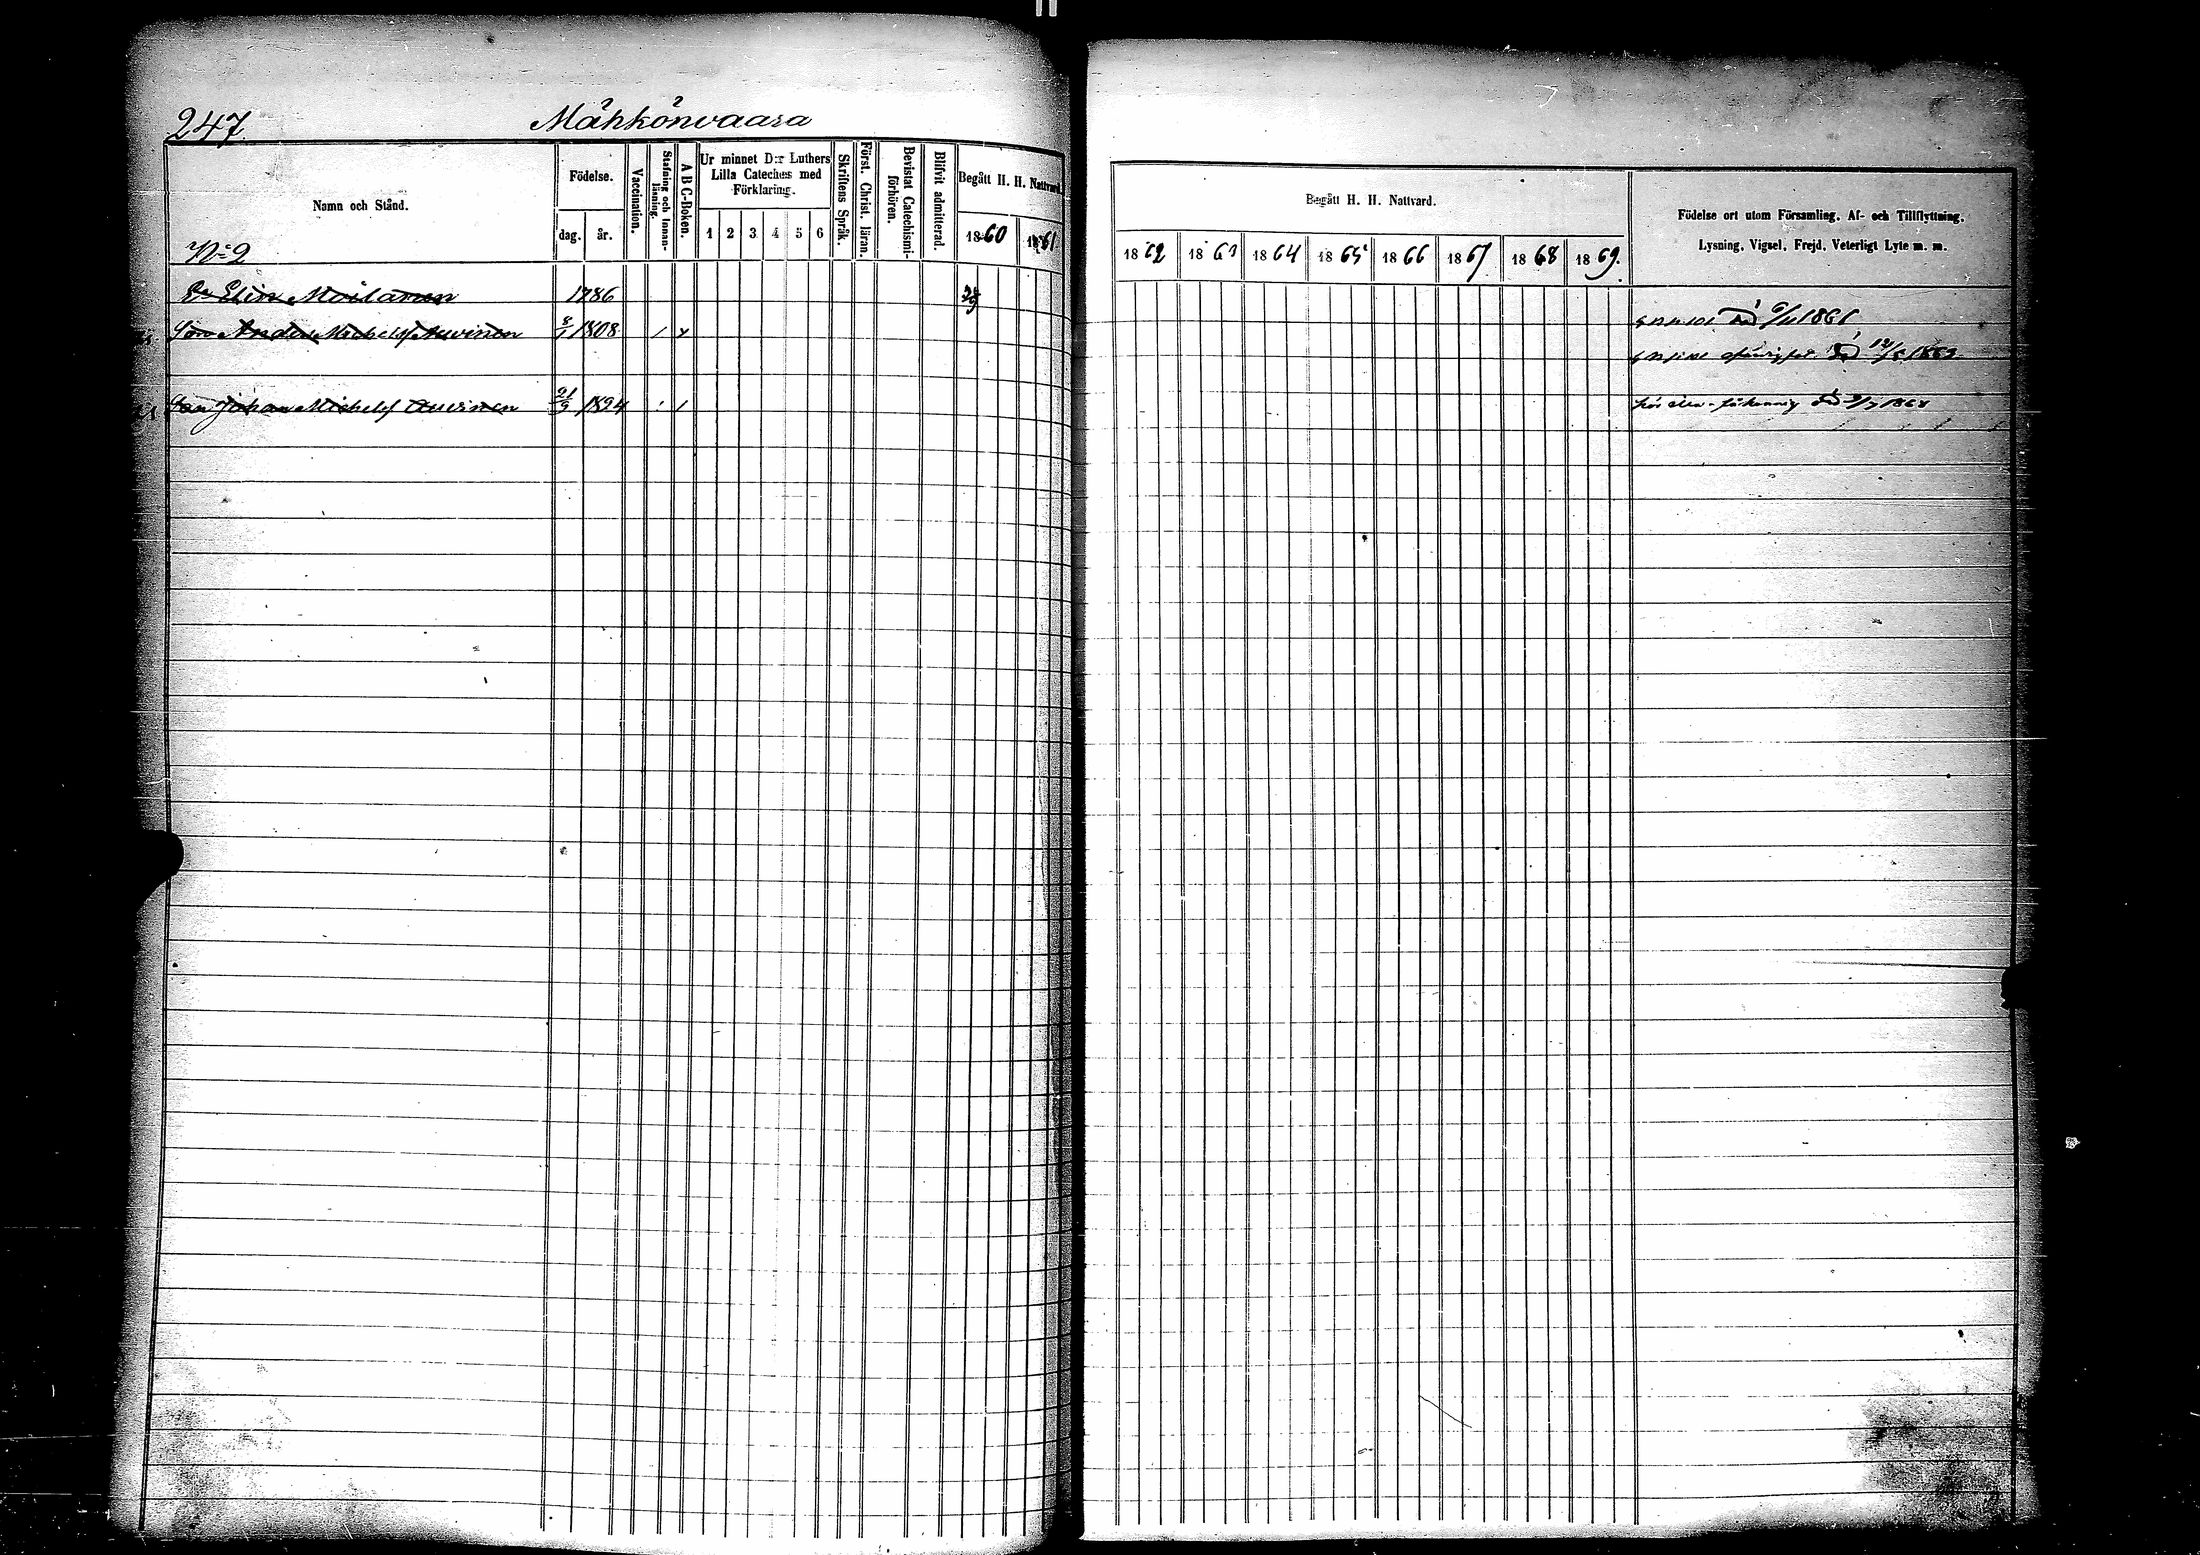 247.
Mähkönvaara
Namn och Stånd.
Födelse.
dag.
år.
Vaccination.
Stafning och Innan-
läsning.
A B C-Boken.
Ur minnet D:r Luthers
Lilla Cateches med
Förklaring.
1 2 3 4 5 6
Skriftens Språk.
Först. Christ. läran.
Bevistat Catechismi-
förhören.
Blifvit admitterad.
Begått H. H. Nattvard.
1860 1861
N:2
Elin Moilanen 1786
Son Anders Michelsf Auvinen 8/1 1808
Son Johan Michelsf Auvinen 21/9 1824
Begått H. H. Nattvard.
1862 1863 1864 1865 1866 1867 1868 1869.
Födelse ort utom Församling, Af- och Tillflyttning,
Lysning, Vigsel, Frejd, Veterligt Lyte m. m.
död 9/11 1861
död 12/5 1863
död 9/7 1868